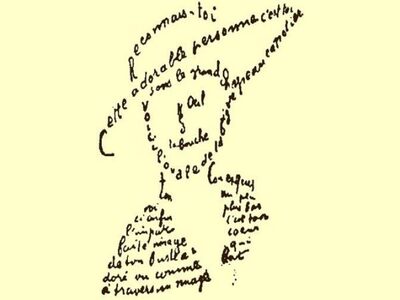 Reconnais-toi
Cette adorable personne c'est toi
sous le grand chapeau canotier
Œil
Nez
la bouche
Voici l'ovale de ta figure
Ton cou
exquis
voici enfin
l'imparfaite image
de ton buste
adoré vu comme
à travers un nuage
un peu
plus bas
c'est ton
coeur
qui
bat